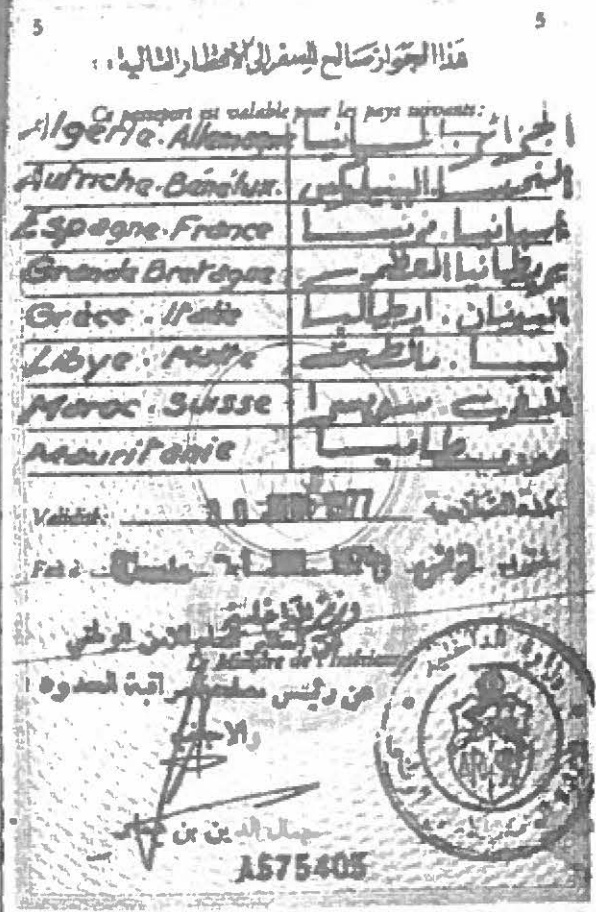 5 5
هذا الجواز صالح للسفر إلى الأقطار التالية :
Ce passeport est valable pour les pays suivants:
Algérie. Allemagne الجزائر. المانيا
Autriche. Bénélux. النمسا. البينيلكس
Espagne. France اسبانيا. فرنسا
Grande Bretagne بريطانيا العظمى
Grèce. Italie اليونان. ايطاليا
Libye. Malte ليبيا. مالطة
Maroc. Suisse المغرب سويسرا
Mauritanie موريطانيا
Validité 1977
Fait à تونس
وزير الداخلية
للأمن الوطني
Le Ministre de l'Intérieur
عن رئيس مصلحة مراقبة الحدود
والأجانب
وزارة الداخلية
جمال الدين بن
A575405